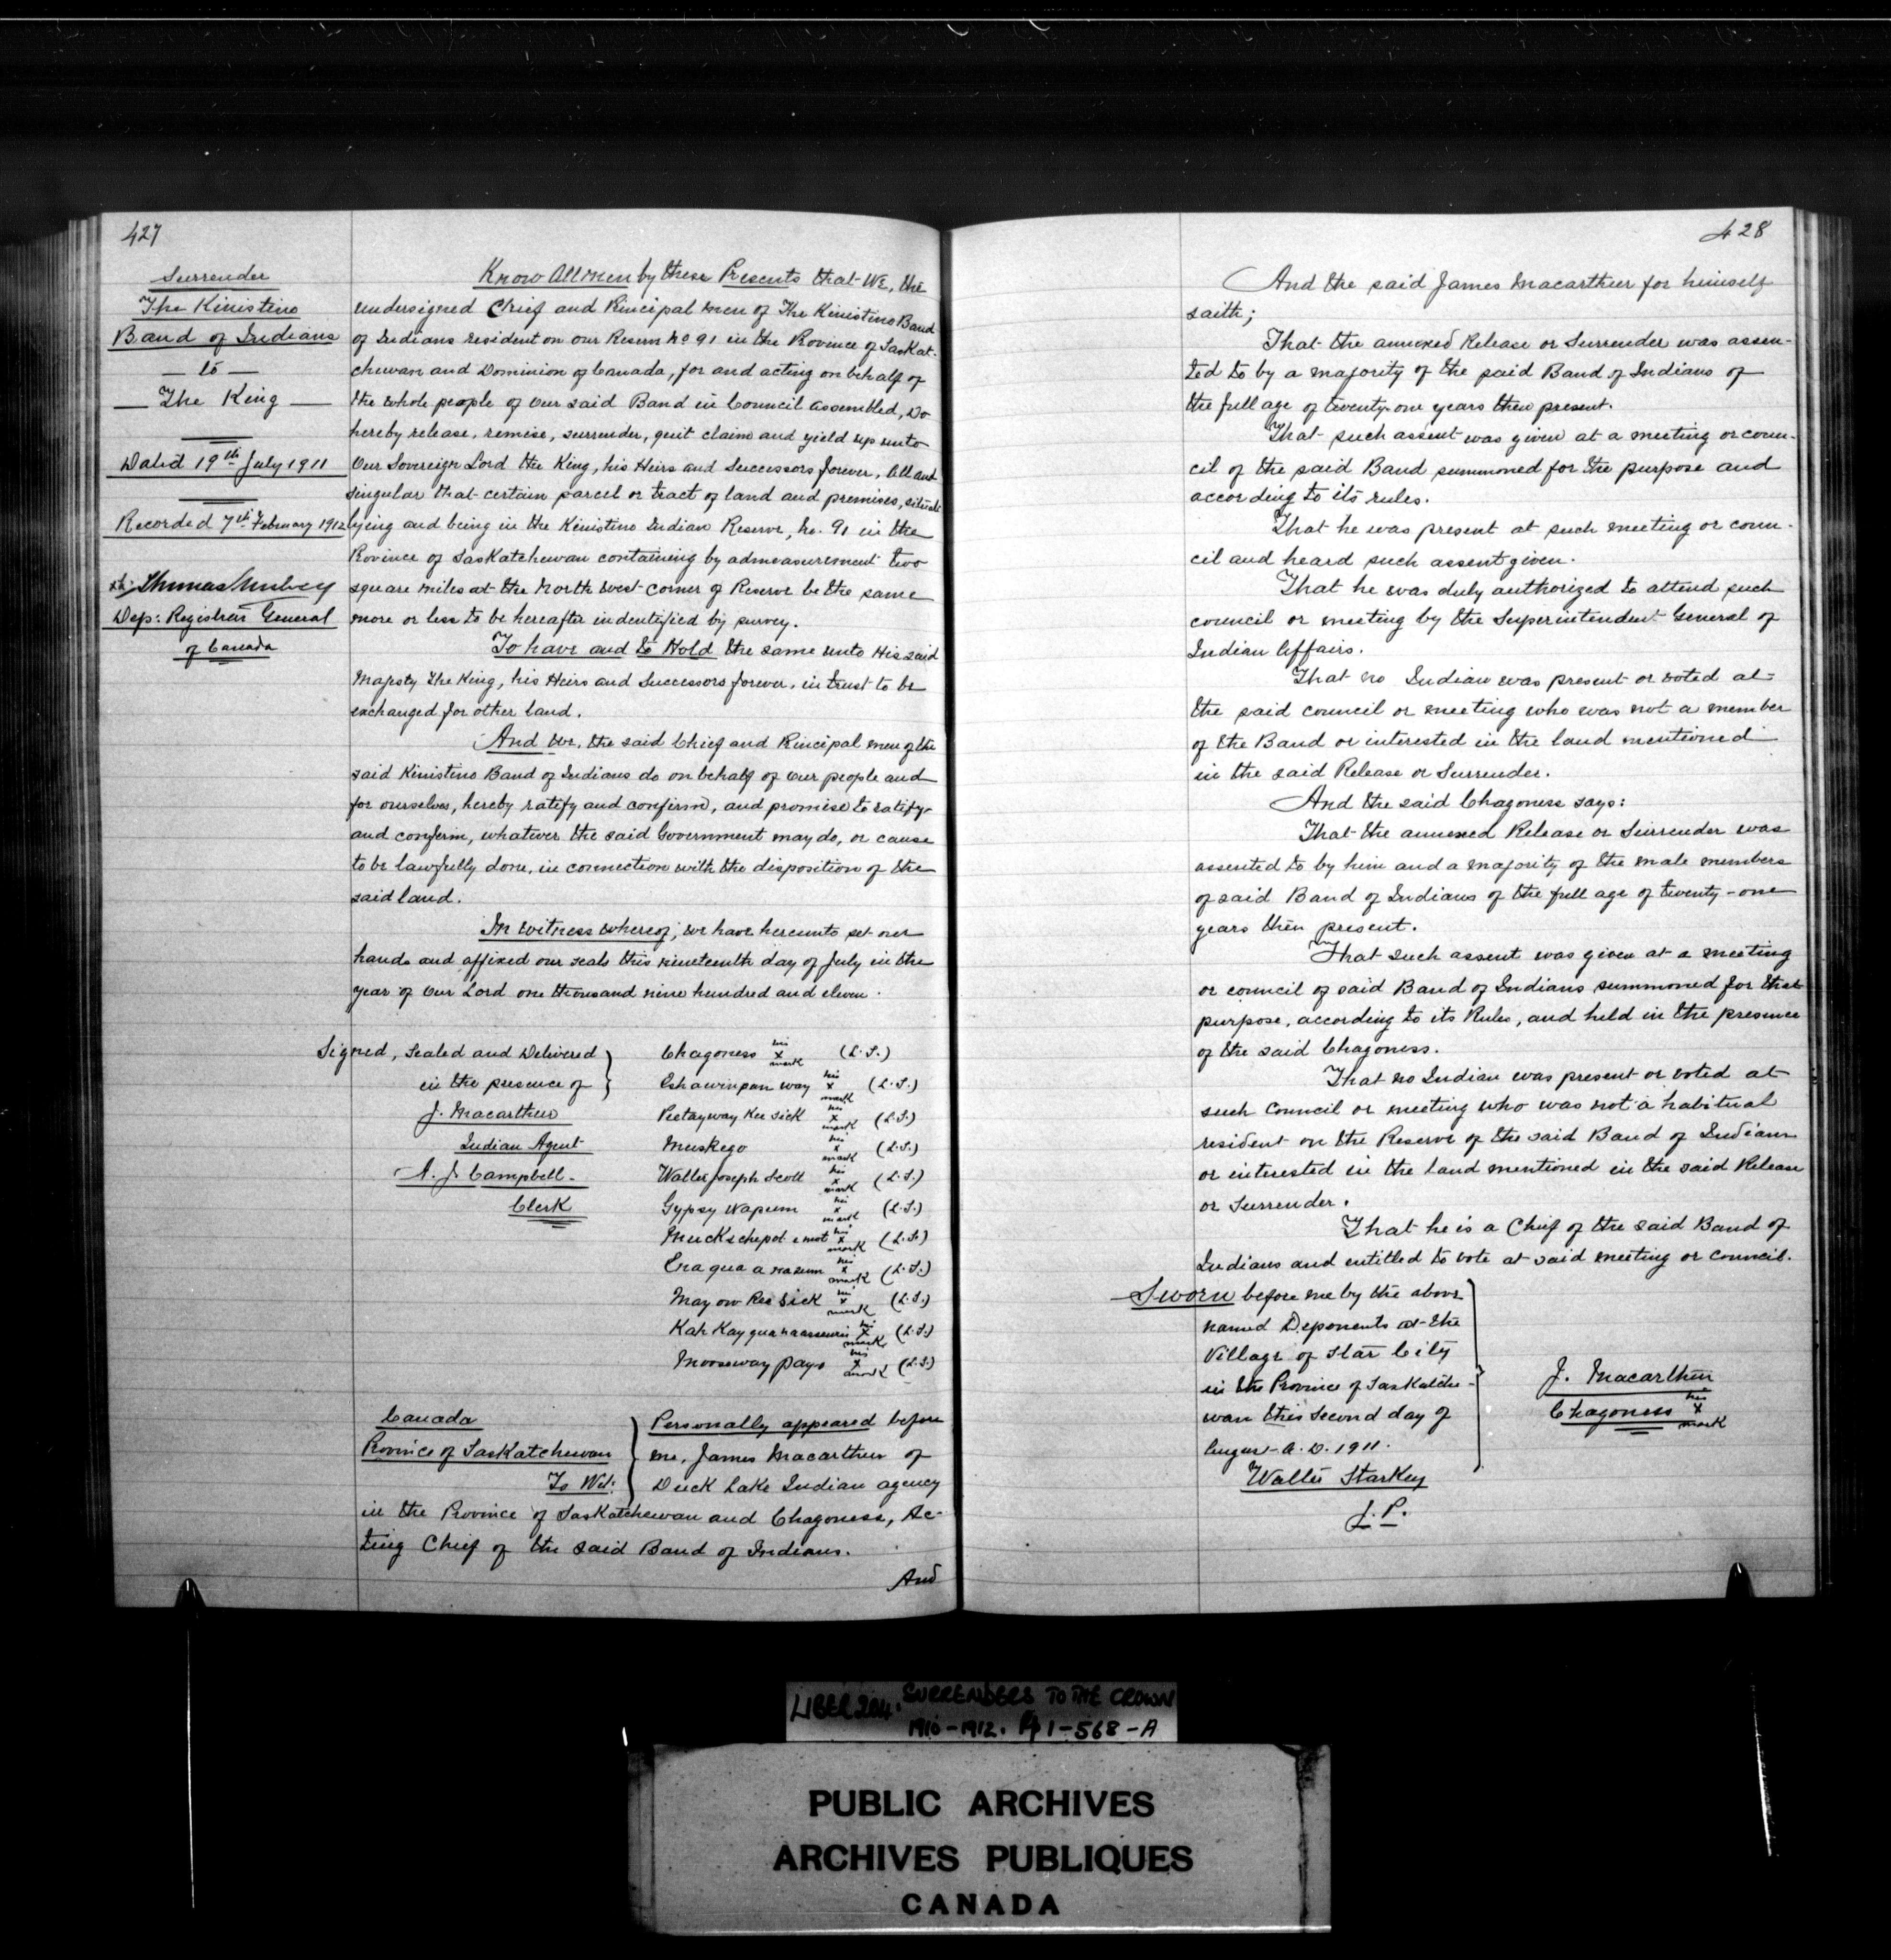 427
Surrender
The Kinistino
Band of Indians
— to —
— The King —
Dated 19th July 1911
Recorded 7th February 1912
Dep: Registrar General
of Canada
Know All men by these Presents that We, the
undersigned Chief and Principal men of The Kinistino Band
of Indians resident on our Reserve No 91 in the Province of Saskat-
chewan and Dominion of Canada, for and acting on behalf of
the whole people of our said Band in Council assembled, Do
hereby release, remise, surrender, quit claim and yield up unto
Our Sovereign Lord the King, his Heirs and Successors forever, All and
singular that certain parcel or tract of land and premises, situate
lying and being in the Kinistino Indian Reserve, No. 91 in the
Province of Saskatchewan containing by admeasurement two
square miles at the North West corner of Reserve be the same
more or less to be hereafter indentified by survey.
To have and to Hold the same unto His said
Majesty The King, his Heirs and Successors forever, in trust to be
exchanged for other land.
And We, the said Chief and Principal men of the
said Kinistino Band of Indians do on behalf of our people and
for ourselves, hereby ratify and confirm, and promise to ratify
and confirm, whatever the said Government may do, or cause
to be lawfully done, in connection with the disposition of the
said land.
In witness whereof, we have hereunto set our
hands and affixed our seals this nineteenth day of July in the
year of Our Lord one thousand nine hundred and eleven.
Signed, Sealed and Delivered
in the presence of
J. Macarthur
Indian Agent
A. J. Campbell.
Clerk
Chagoness his x mark (L.S.)
Eshawinpan way his x mark (L.S.)
Peetayway Kee sick his x mark (L.S.)
Muskego his x mark (L.S.)
Walter Joseph Scott his x mark (L.S.)
Gypsy Wapum his x mark (L.S.)
his x mark (L.S.)
his x mark (L.S.)
May ow Kee sick his x mark (L.S.)
his x mark (L.S.)
Mooseway pays his x mark (L.S.)
Canada
Province of Saskatchewan
To Wit:
Personally appeared before
me, James Macarthur of
Duck Lake Indian agency
in the Province of Saskatchewan and Chagoness, Ac-
ting Chief of the said Band of Indians.
And
428
And the said James Macarthur for himself
saith;
That the annexed Release or Surrender was assen-
ted to by a majority of the said Band of Indians of
the full age of twenty-one years then present.
That such assent was given at a meeting or coun-
cil of the said Band summoned for the purpose and
according to its rules.
That he was present at such meeting or coun-
cil and heard such assent given.
That he was duly authorized to attend such
council or meeting by the Superintendent General of
Indian Affairs.
That no Indian was present or voted at
the said council or meeting who was not a member
of the Band or interested in the land mentioned
in the said Release or Surrender.
And the said Chagoness says:
That the annexed Release or Surrender was
assented to by him and a majority of the male members
of said Band of Indians of the full age of twenty-one
years then present.
That such assent was given at a meeting
or council of said Band of Indians summoned for that
purpose, according to its Rules, and held in the presence
of the said Chagoness.
That no Indian was present or voted at
such Council or meeting who was not a habitual
resident on the Reserve of the said Band of Indians
or interested in the land mentioned in the said Release
or Surrender.
That he is a Chief of the said Band of
Indians and entitled to vote at said meeting or council.
Sworn before me by the above
named Deponents at the
Village of Star City
in the Province of Saskatche-
wan this second day of
August A.D. 1911.
Walter Starkey
J.P.
J. Macarthur
Chagoness his x mark
LIBER 204. SURRENDERS TO THE CROWN
1910-1912. Pp 1-568-A
PUBLIC ARCHIVES
ARCHIVES PUBLIQUES
CANADA